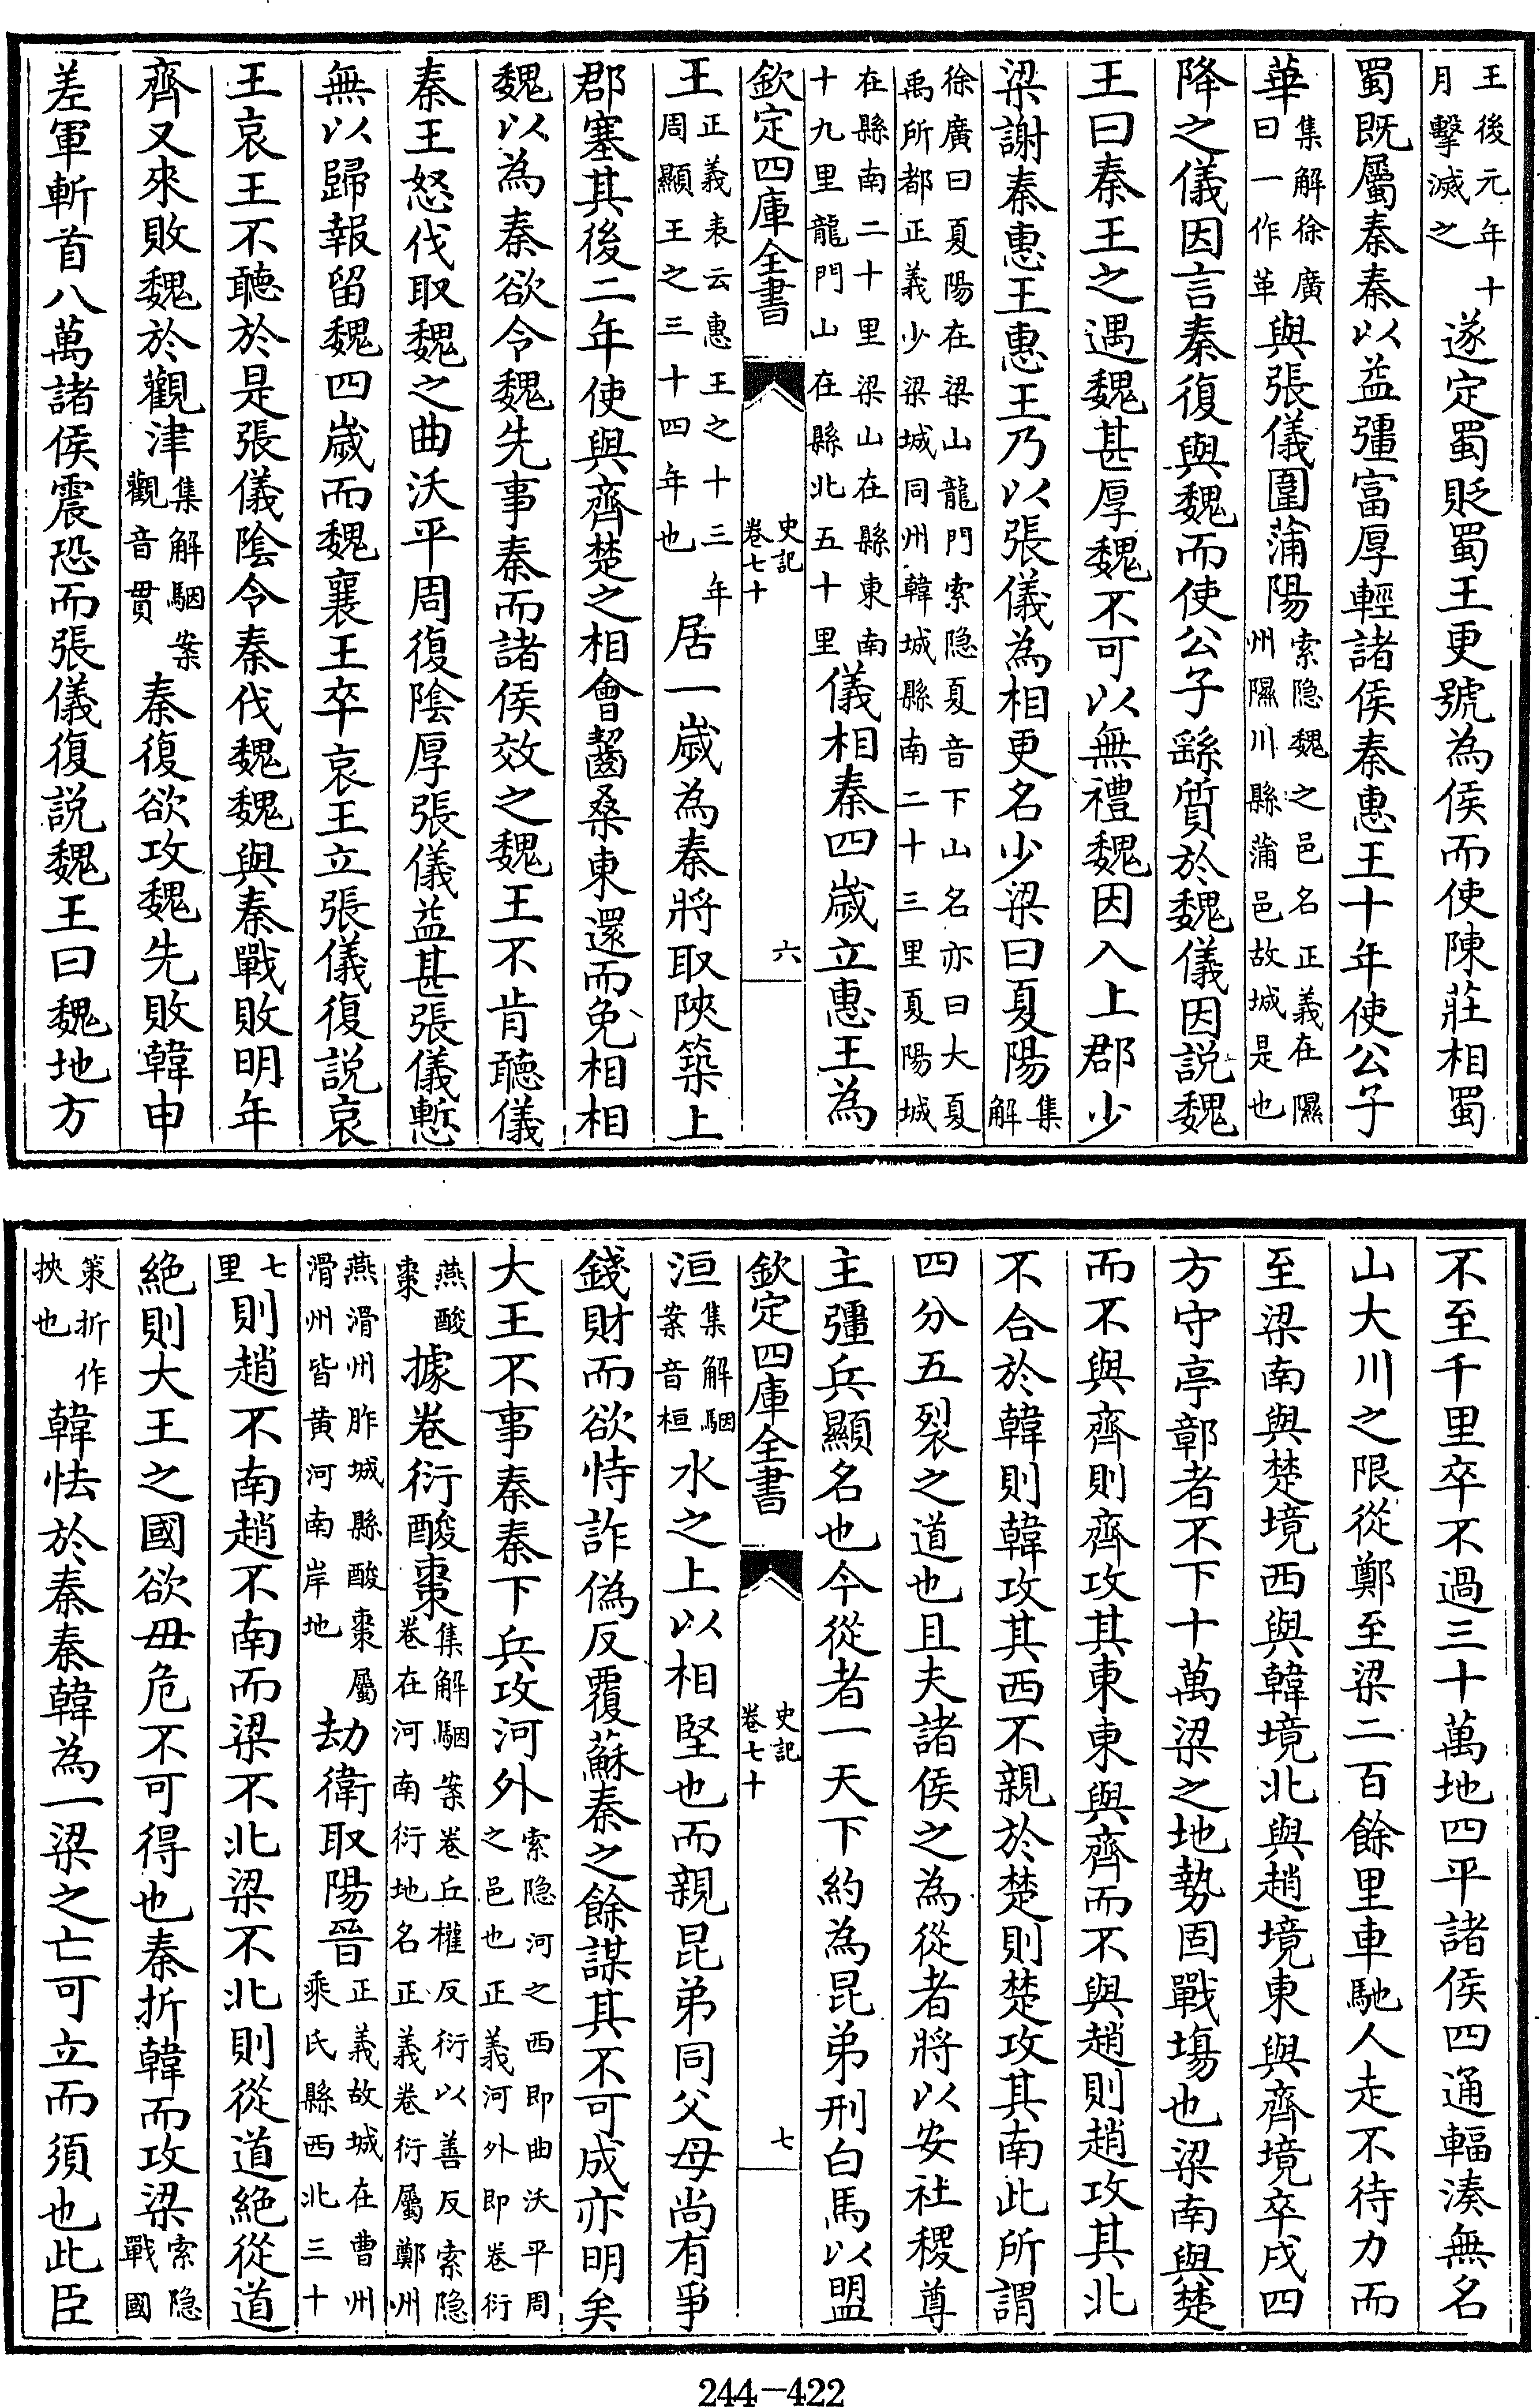 王後元年十月擊滅之遂定蜀貶蜀王更號為侯而使陳莊相蜀
蜀既屬秦秦以益彊富厚輕諸侯秦惠王十年使公子
華集解徐廣曰一作革與張儀圍蒲陽索隐魏之邑名正義在隰州隰川縣蒲邑故城是也
降之儀因言秦復與魏而使公子繇質於魏儀因説魏
王曰秦王之遇魏甚厚魏不可以無禮魏因入上郡少
梁謝秦惠王惠王乃以張儀為相更名少梁曰夏陽集解
徐廣曰夏陽在梁山龍門索隐夏音下山名亦曰大夏禹所都正義少梁城同州韓城縣南二十三里夏陽城
在縣南二十里梁山在縣東南十九里龍門山在縣北五十里儀相秦四歲立惠王為
欽定四庫全書 史記卷七十 六
王正義表云惠王之十三年周顯王之三十四年也居一歲為秦將取陝築上
郡塞其後二年使與齊楚之相會齧桑東還而免相相
魏以為秦欲令魏先事秦而諸侯效之魏王不肯聽儀
秦王怒伐取魏之曲沃平周復陰厚張儀益甚張儀慙
無以歸報留魏四歲而魏襄王卒哀王立張儀復説哀
王哀王不聽於是張儀陰令秦伐魏魏與秦戰敗明年
齊又來敗魏於觀津集解駰案觀音貫秦復欲攻魏先敗韓申
差軍斬首八萬諸侯震恐而張儀復説魏王曰魏地方
不至千里卒不過三十萬地四平諸侯四通輻湊無名
山大川之限從鄭至梁二百餘里車馳人走不待力而
至梁南與楚境西與韓境北與趙境東與齊境卒戍四
方守亭鄣者不下十萬梁之地勢固戰塲也梁南與楚
而不與齊則齊攻其東東與齊而不與趙則趙攻其北
不合於韓則韓攻其西不親於楚則楚攻其南此所謂
四分五裂之道也且夫諸侯之為從者將以安社稷尊
主彊兵顯名也今從者一天下約為昆弟刑白馬以盟
欽定四庫全書 史記卷七十 七
洹集解駰案音桓水之上以相堅也而親昆弟同父母尚有爭
錢財而欲恃詐偽反覆蘇秦之餘謀其不可成亦明矣
大王不事秦秦下兵攻河外索隐河之西即曲沃平周之邑也正義河外即卷衍
燕酸棗據卷衍酸棗集解駰案卷丘權反衍以善反索隐卷在河南衍地名正義卷衍屬鄭州
燕滑州胙城縣酸棗屬滑州皆黄河南岸地劫衛取陽晉正義故城在曹州乘氏縣西北三十
七里則趙不南趙不南而梁不北梁不北則從道絶從道
絶則大王之國欲毋危不可得也秦折韓而攻梁索隐戰國
策折作挾也韓怯於秦秦韓為一梁之亡可立而須也此臣
244-422